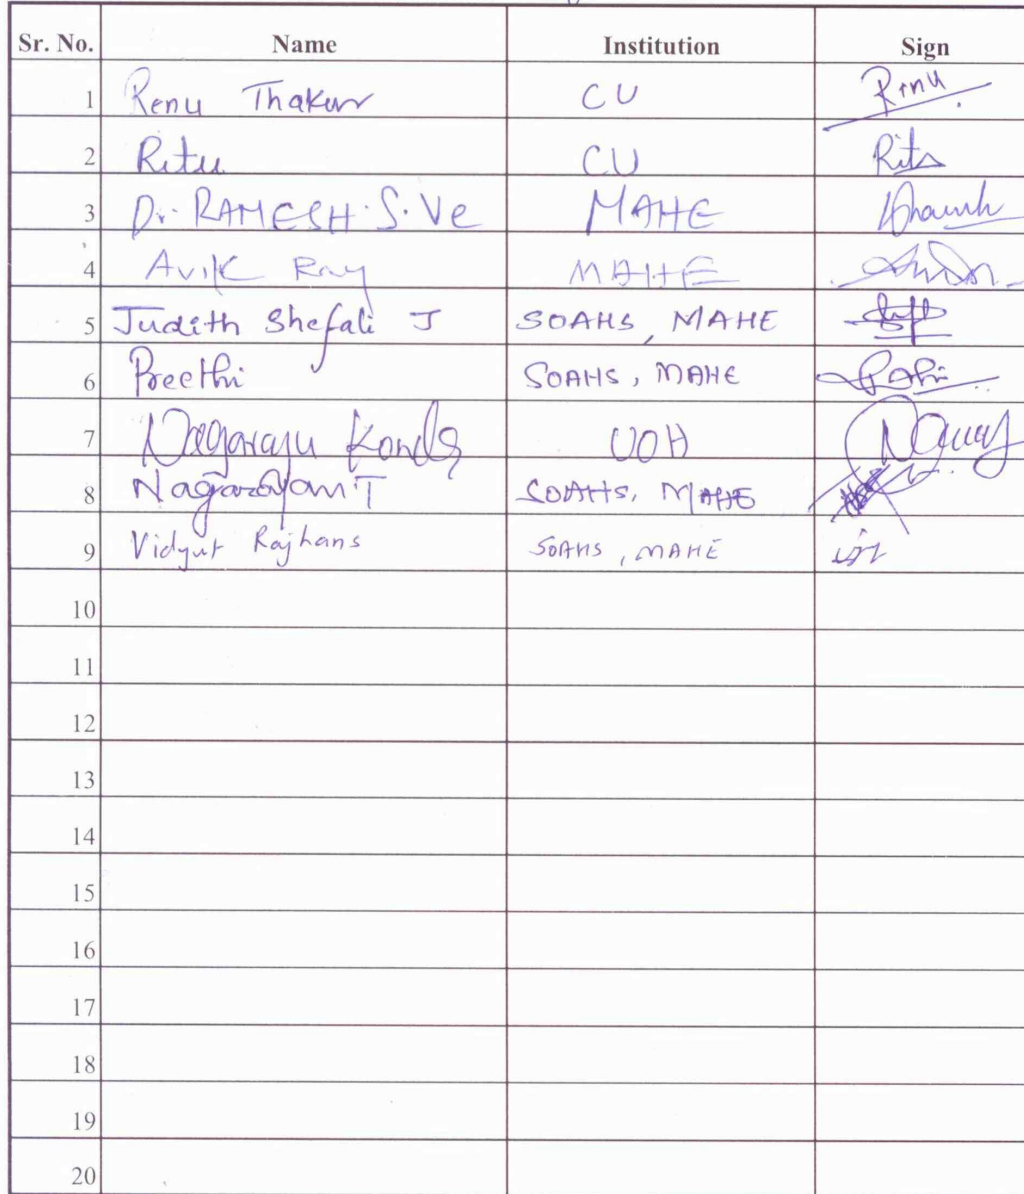 Sr. No. Name Institution Sign
1 Renu Thakur CU Renu
2 Ritu CU Ritu
3 Dr. RAMESH. S. Ve MAHE
4 Avik Ray MAHE
5 Judith Shefali J SOAHS, MAHE
6 Preethi SOAHS, MAHE
7 Nagaraju Konda UOH
8 Nagarajan T SOAHS, MAHE
9 Vidyut Rajhans SOAHS, MAHE
10
11
12
13
14
15
16
17
18
19
20